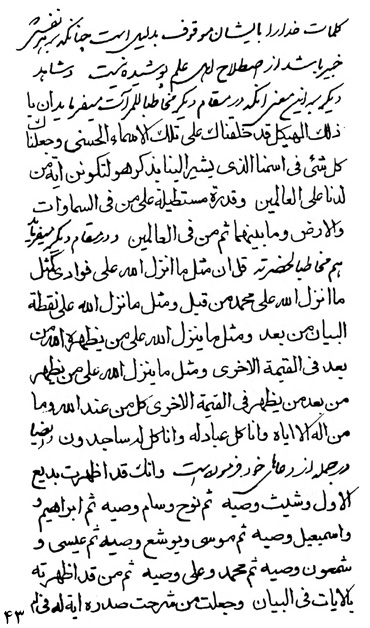 کلمات خدا را بایشان موقوف بدلیلی است چنانکه بر هر نفسی
خبیر باشد از اصطلاح اهل علم پوشیده نیست و شاهد
دیگر بر این معنی آنکه در مقام دیگر مخاطبا للمرآت میفرماید ان یا
ذلك الهیکل قد خلقناك علی تلك الاسماء الحسنی وجعلناك
کل شئی فی اسمنا الذی یشیر الینا بذکر هو لتکونن ایة من
لدنا علی العالمین وقدرة مستطیلة علی من فی السماوات
والارض وما بینهما ثم من فی العالمین و در مقام دیگر میفرماید
هم مخاطبا لحضرته قل ان مثل ما انزل الله علی فوادی کمثل
ما انزل الله علی محمد من قبل ومثل ما نزل الله علی نقطة
البیان من بعد ومثل ما ینزل الله علی من یظهره الله من
بعد فی القیمة الاخری ومثل ما ینزل الله علی من یظهر
من بعد من یظهر فی القیمة الاخری کل من عند الله وما
من اله الا ایاه وانا کل عباد له وانا کل له ساجدون و ایضا
در جمله از دعاهای خود فرموده است وانك قد اظهرت بدیع
الاول وشیث وصیه ثم نوح وسام وصیه ثم ابراهیم و
واسمیعیل وصیه ثم موسی ویوشع وصیه ثم عیسی و
شمعون وصیه ثم محمد وعلی وصیه ثم من قد اظهرته
بالایات فی البیان وجعلت من شرحت صدره ایة له فی ایام
۴۳